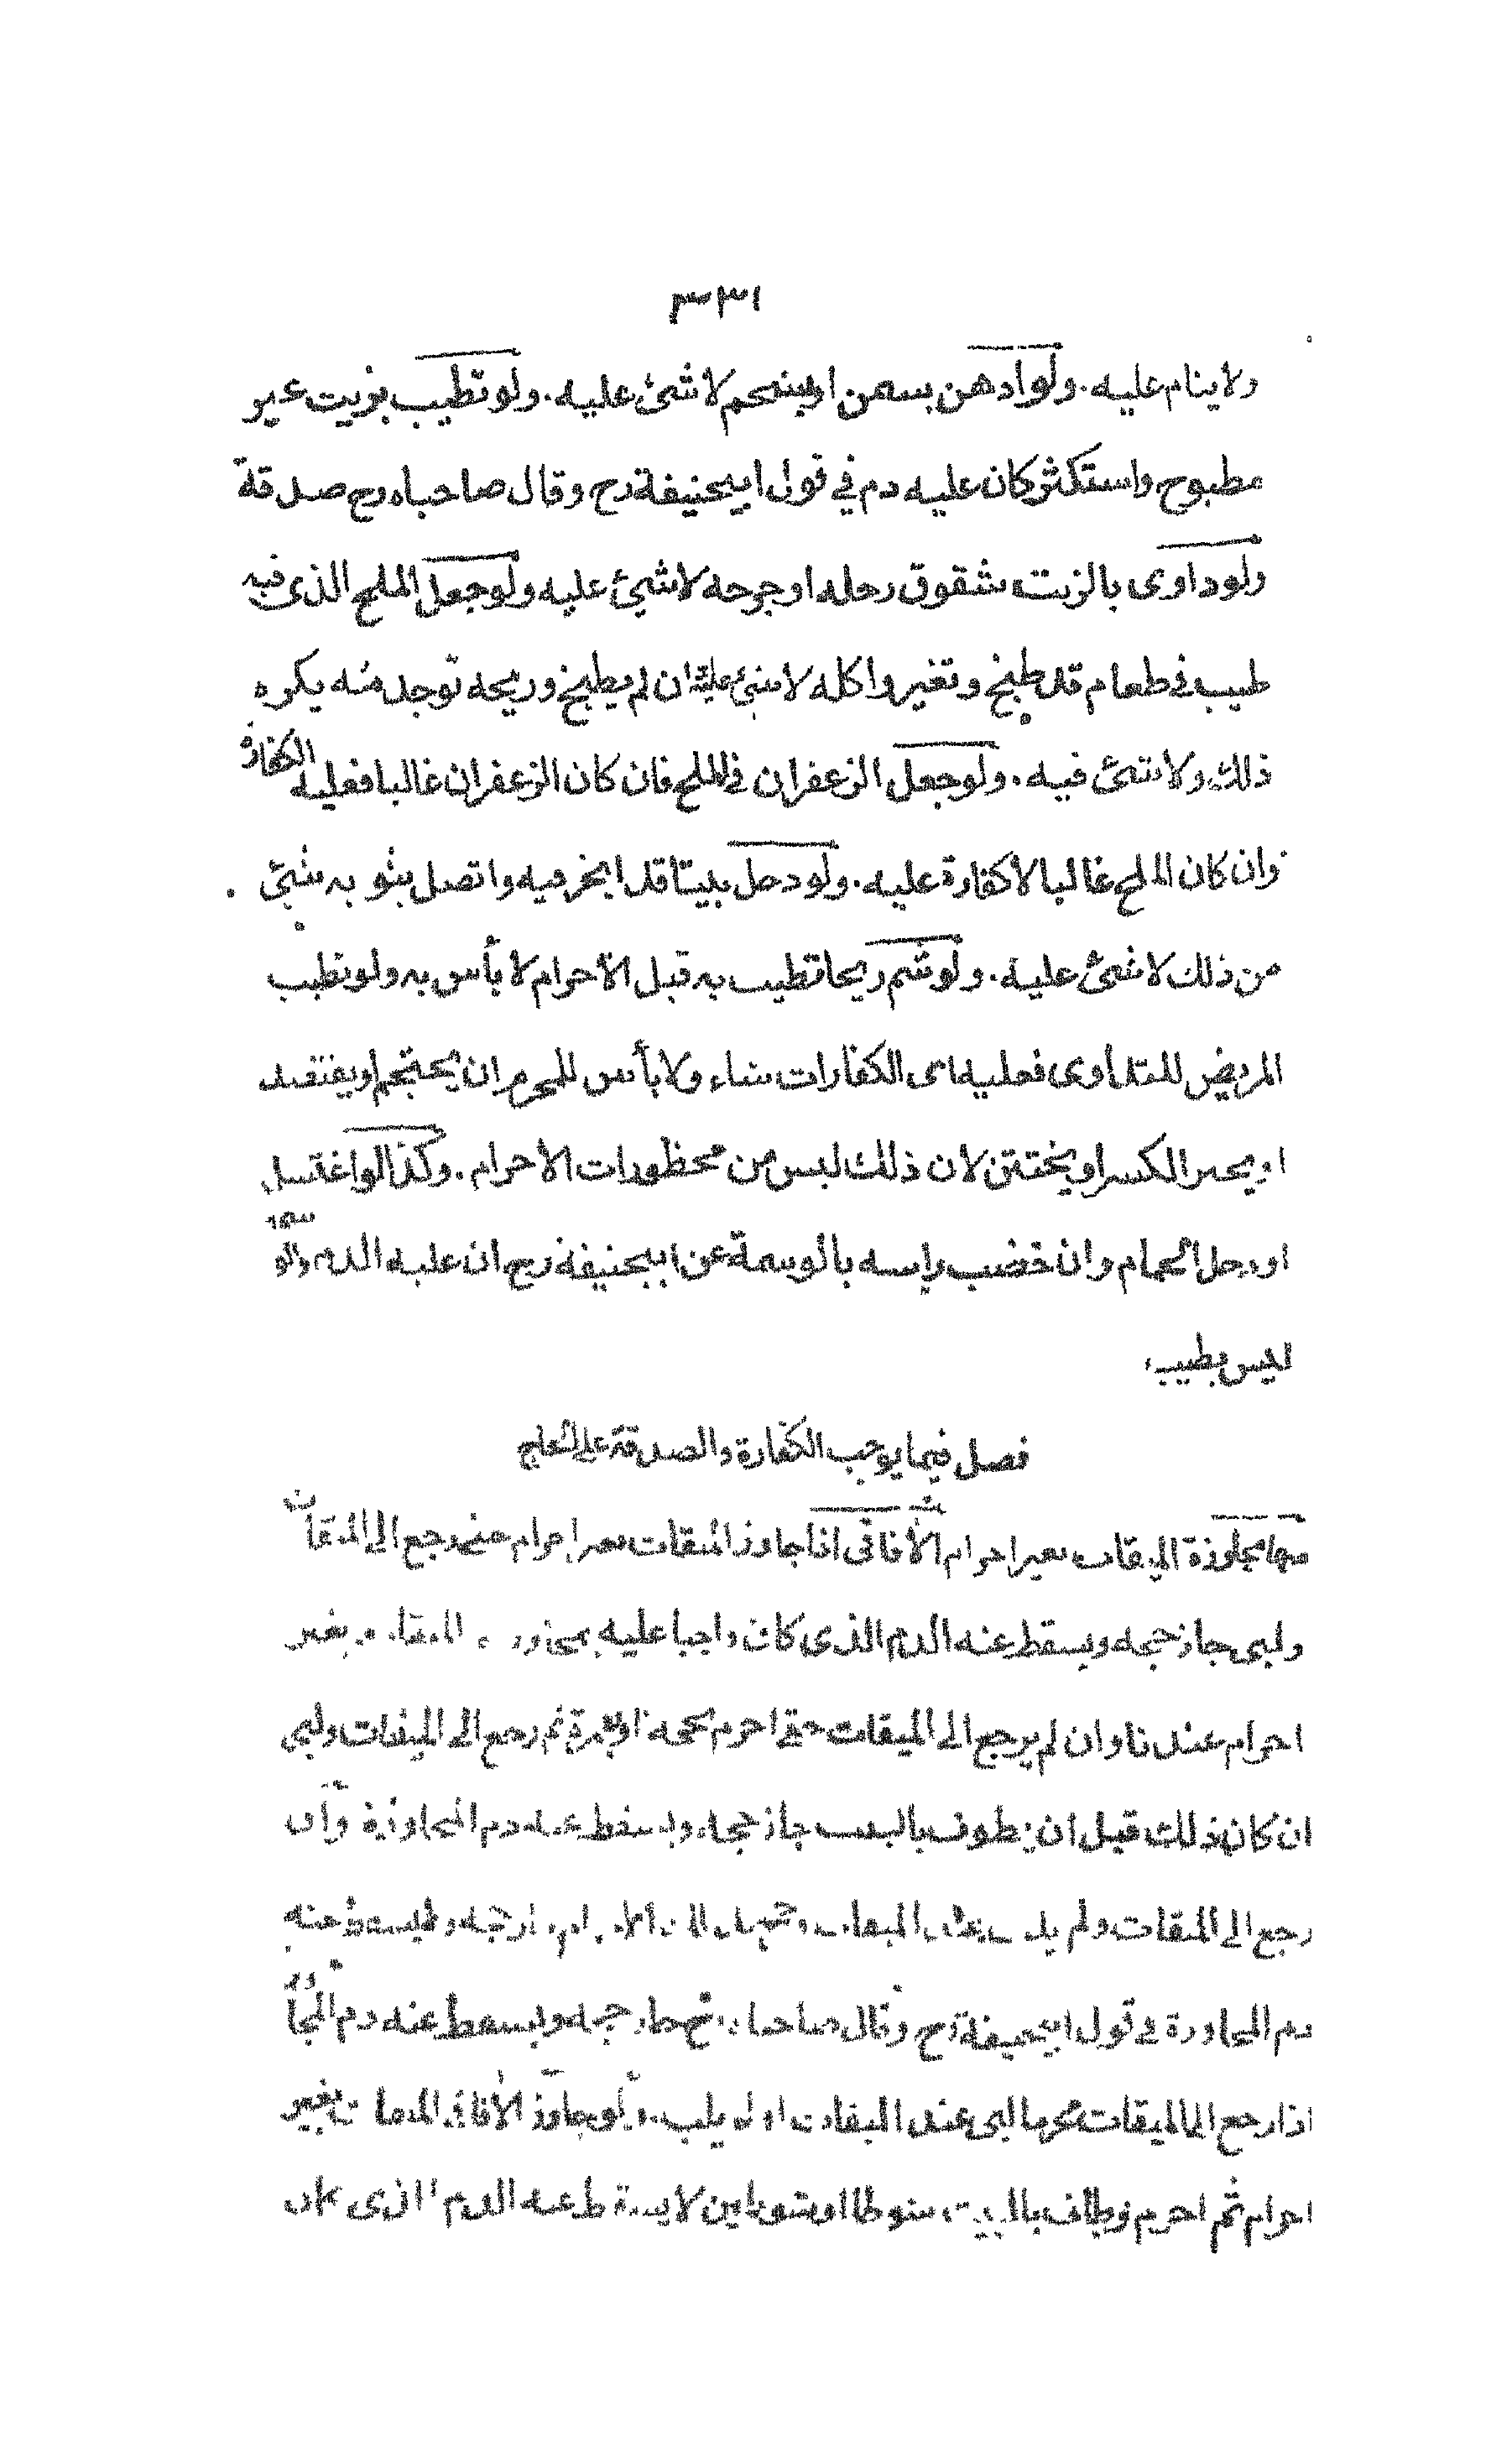 ٣٣١
ولا ينام عليه. ولو ادهن بسمن او بشحم لا شئ عليه. ولو تطيب بزيت غير
مطبوخ واستكثر كان عليه دم في قول ابيحنيفة رح وقال صاحباه رح صدقة
ولو داوى بالزيت شقوق رجله او جرحه لا شئ عليه ولو جعل الملح الذى فيه
طيب في طعام قد طبخ وتغير واكله لا شئ عليه ان لم يطبخ وريحه توجد منه يكره
ذلك ولا شئ فيه. ولو جعل الزعفران في الملح فان كان الزعفران غالبا فعليه الكفارة
وان كان الملح غالبا لا كفارة عليه. ولو دخل بيتا قد ابخر فيه واتصل بثوبه شئ
من ذلك لا شئ عليه. ولو شم ريحا تطيب به قبل الاحرام لا بأس به ولو تطيب
المريض للتداوى فعليه اى الكفارات شاء ولا بأس للمحرم ان يحتجم او يفتصد
او يجبر الكسر او يختتن لان ذلك ليس من محظورات الاحرام. وكذا لو اغتسل
او دخل الحمام وان خضب راسه بالوسمة عن ابيحنيفة رح ان عليه الدم والوسمة
ليس بطيب.
فصل فيما يوجب الكفارة والصدقة على الحاج
منها مجاوزة الميقات بغير احرام الآفاقى اذا جاوز الميقات بغير احرام حتى رجع الى الميقات
ولبى جاز حجه ويسقط عنه الدم الذى كان واجبا عليه بمجاوزة الميقات بغير
احرام عندنا وان لم يرجع الى الميقات حتى احرم بحجة او عمرة ثم رجع الى الميقات ولبى
ان كان ذلك قبل ان يطوف بالبيت جاز حجه ويسقط عنه دم المجاوزة وان
رجع الى الميقات ولم يلب عند الميقات جاز حجه ولا يسقط عنه
دم المجاورة في قول ابيحنيفة رح وقال صاحباه رح جاز حجه ويسقط عنه دم المجاوزة
اذا رجع الى الميقات محرما لبى عند الميقات او لم يلب. ولو جاوز الآفاقى الميقات بغير
احرام ثم احرم وطاف بالبيت شوطا او شوطين لا يسقط عنه الدم الذى كان